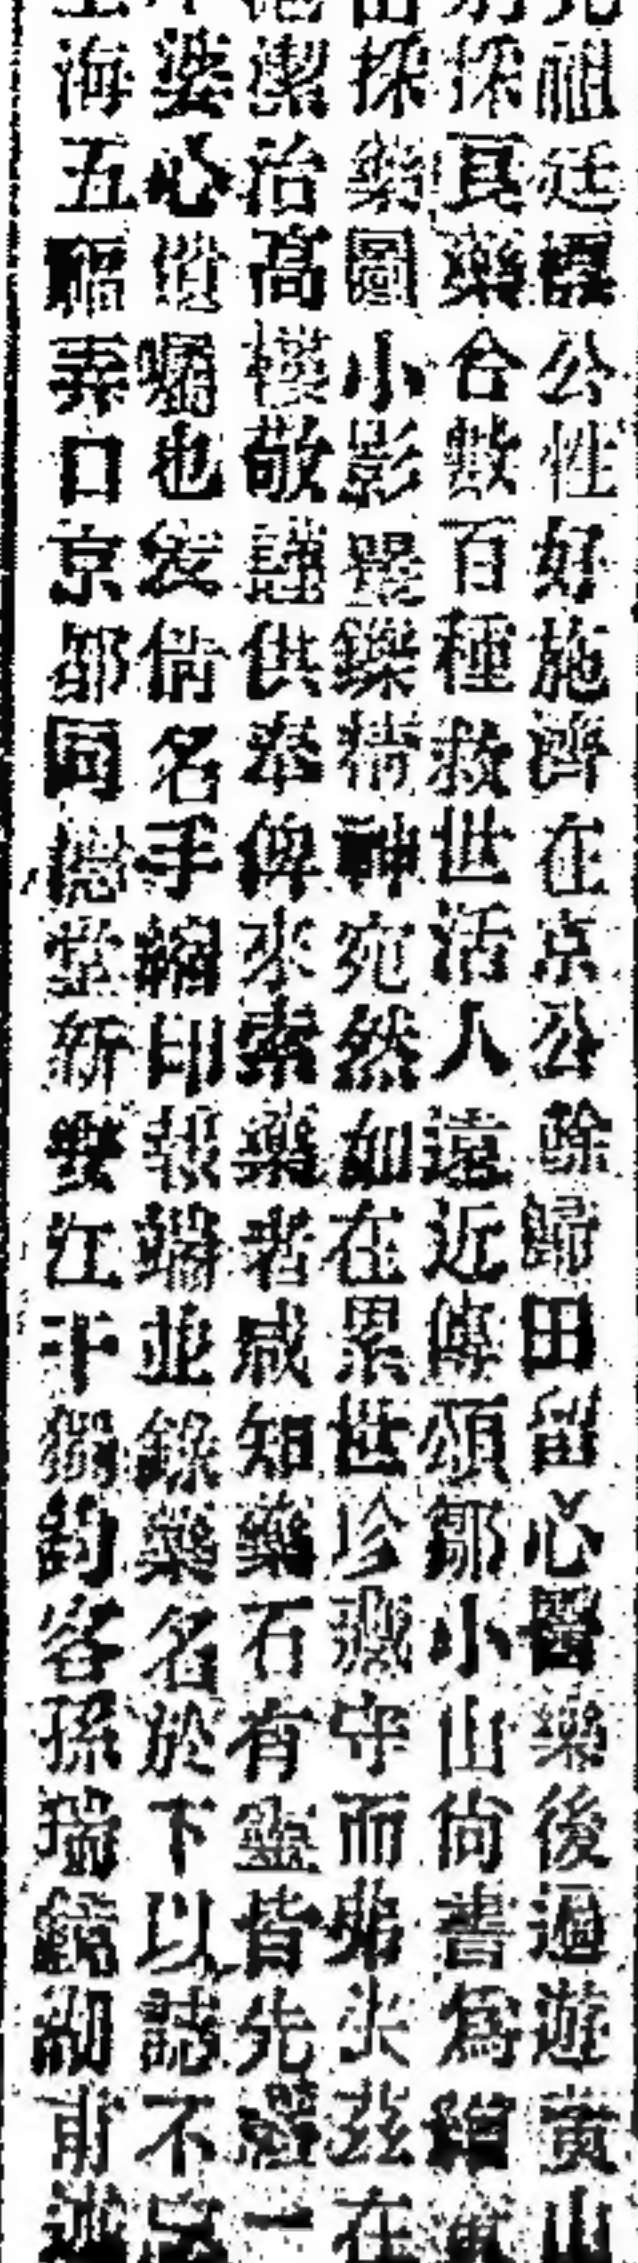 祖廷諤公性好施濟在京公餘歸田留心醫藥後遍遊黃山
採良藥合數百種救世活人遠近傳頌鄒小山尚書爲繪
採藥圖小影矍鑠精神宛然如在累世珍藏守而弗失茲在
潔治高樓敬謹供奉俾來索藥者咸知藥石有靈皆先德一
婆心遺囑也爰倩名手縮印報端並錄藥名於下以誌不忘
海五福弄口京都同德堂新墅江干獨釣客孫瑞鏡湖甫述